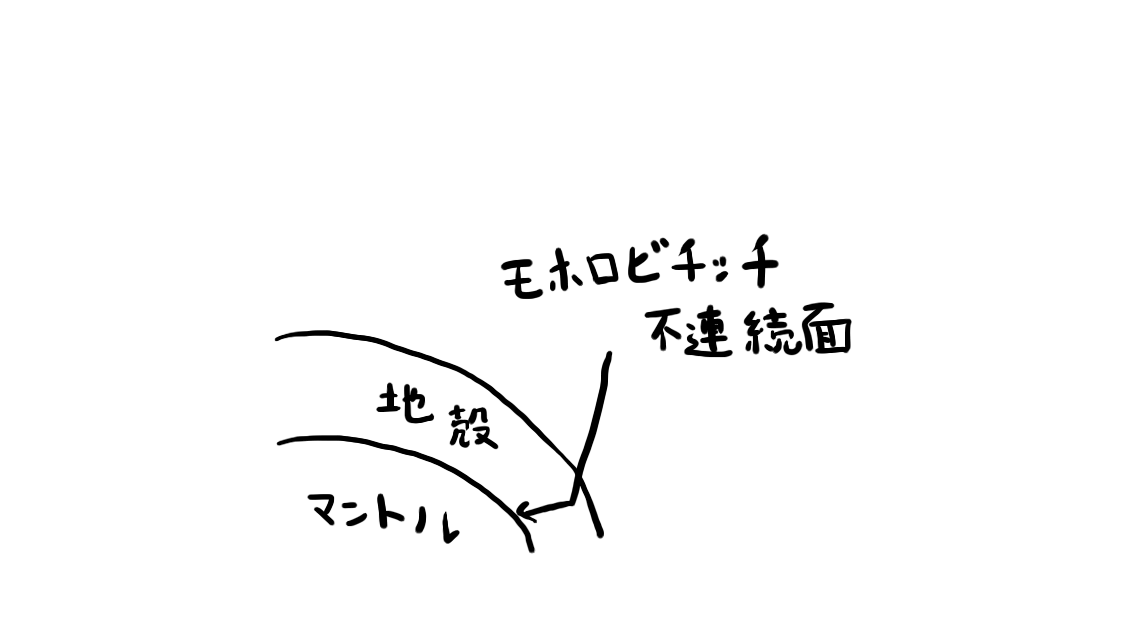 モホロビチッチ
不連続面
地殻
マントル